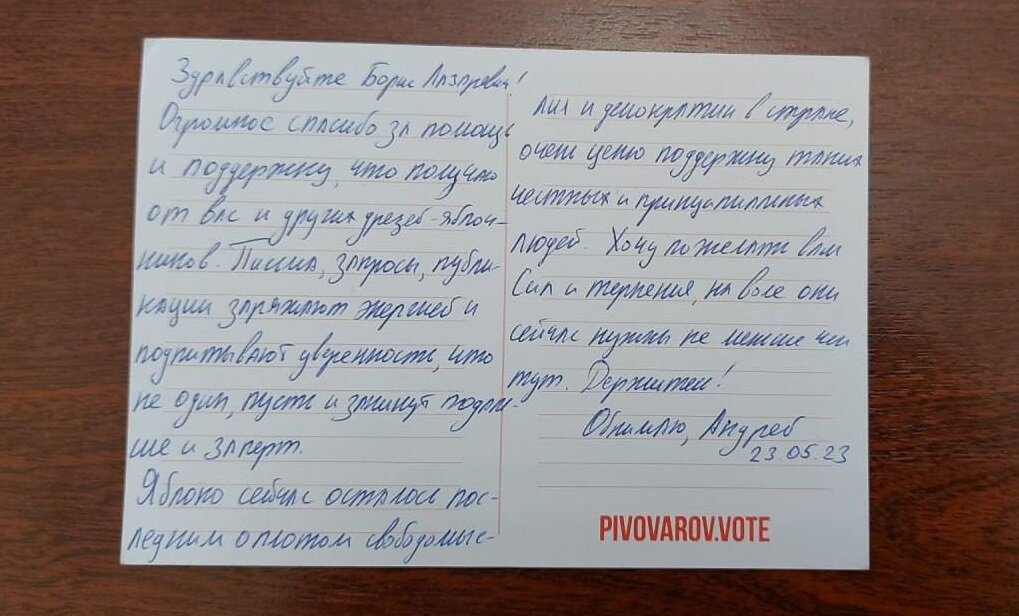 Здравствуйте Борис Лазаревич!
Огромное спасибо за помощь
и поддержку, что получаю
от вас и других друзей-яблоч-
ников. Письма, запросы, публи-
кации заряжают энергией и
подпитывают уверенность, что
не один, пусть и закинут подаль-
ше и заперт.
Яблоко сейчас осталось пос-
ледним оплотом свободомыс-
лия и демократии в стране,
очень ценю поддержку таких
честных и принципиальных
людей. Хочу пожелать вам
Сил и терпения, на воле они
сейчас нужны не меньше чем
тут. Держитесь!
Обнимаю, Андрей
23.05.23
PIVOVAROV.VOTE